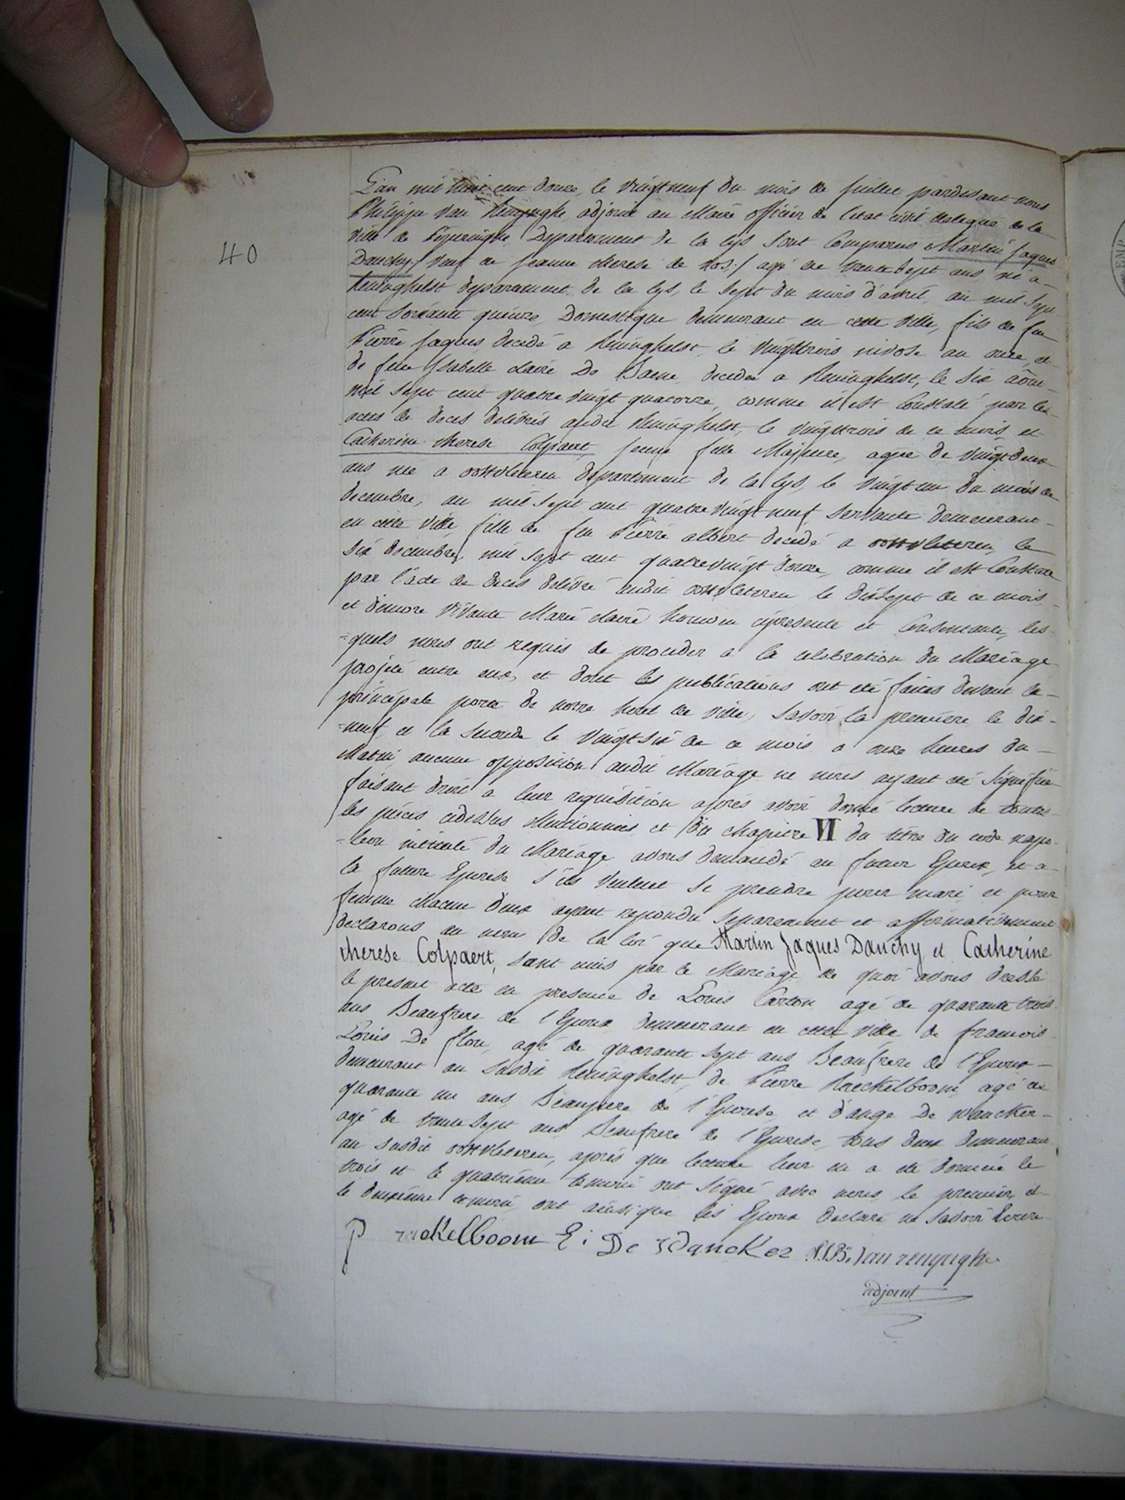 40
L'an mil huit cent douze, le vingtneuf du mois de juillet pardevant nous
Philippe Van Renynghe adjoint au Maire officier de l'état civil delegué de la
ville de Poperinghe Departement de la Lys sont Comparus Martin Jaques
Dauchy / veuf de Jeanne therese de vos / agé de trente sept ans né à
Reninghelst departement de la Lys le sept du mois d'avril an mil sept
cent soixante quinze Domestique demeurant en cette ville, fils de feu
Pierre Jaques decedé à Reninghelst, le vingttrois nivose an onze, et
de feue Isabelle claire De Baene decedée à Reninghelst, le six
mil sept cent quatre vingt quatorze, comme il est Constaté par les
actes de deces delivrés audit Reninghelst, le vingttrois de ce mois, et
Catherine therese Colpaert, jeune fille Majeure, agée de vingtdeux
ans née à oostvleteren departement de la Lys, le vingt un du mois de
decembre, an mil sept cent quatrevingt neuf servante demeurant
en cette ville, fille de feu Pierre albert decedé a oostvleteren, le
six decembre, mil sept cent quatrevingt douze, comme il est Constaté
par l'acte de deces delivré audit oostvleteren le dixsept de ce mois
et d'encore vivante Marie claire cipresente et Consentante, les-
=quels nous ont requis de proceder a la celebration du Mariage
projeté entre eux, et dont les publications ont été faites devant la
principale porte de notre hotel de ville, savoir, la premiere le dix-
=neuf et la seconde le vingt six de ce mois a onze heures du
Matin aucune opposition audit Mariage ne nous ayant été signifiée
faisant droit a leur requisition apres avoir donné lecture de toutes
les pieces cidessus Mentionnées et du chapitre VI du titre du code napo-
=leon intitulé du Mariage avons demandé au futur Epoux, et a
la future Epouse s'ils veulent se prendre pour mari et pour
femme chacun d'eux ayant repondu separement et affirmativement
declarons au nom de la loi que Martin Jaques Dauchy et Catherine
therese Colpaert, sont unis par le Mariage de quoi avons dressé
le present acte en presence de Louis Carton agé de quarante trois
ans Beaufrere de l'Epoux demeurant en cette ville de francois
Louis De flou, agé de quarante sept ans Beaufrere de l'Epoux
demeurant au susdit Reninghelst, de Pierre Haeckelboom, agé de
quarante un ans, Beaupere de l'Epouse et d'ange De wancker
agé de trente sept ans Beaufrere de l'Epouse, tous deux demeurant
au susdit oostvleteren, après que lecture leur en a été donnée le
trois et le quatrième temoin ont signé avec nous le premier, et
le deuxième temoin ont ainsi que les Epoux declaré ne savoir Ecrire
P ckelboom E i De Wancker Van renynghe
adjoint